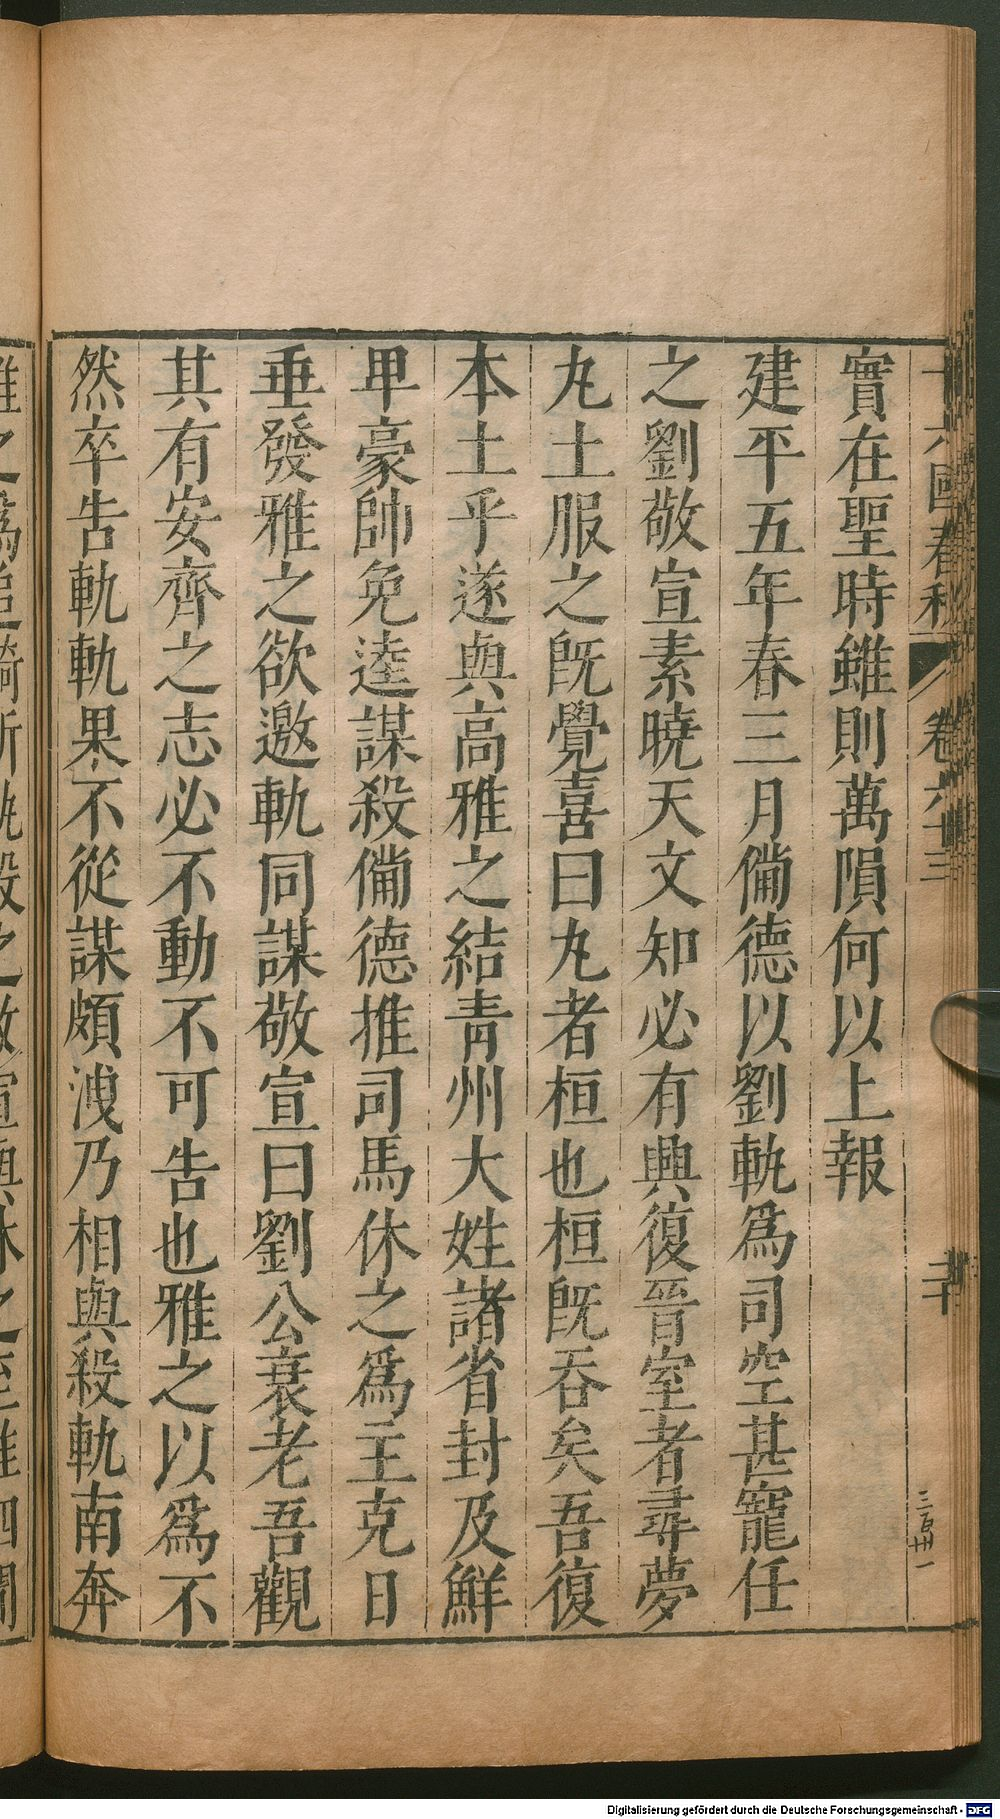 十六國春秋 卷六十三 二十
三百廿一
實在聖時雖則萬隕何以上報
建平五年春三月備德以劉軌爲司空甚寵任
之劉敬宣素曉天文知必有興復晉室者尋夢
丸土服之旣覺喜曰丸者桓也桓旣吞矣吾復
本土乎遂與高雅之結青州大姓諸省封及鮮
甲豪帥免逵謀殺備德推司馬休之爲主克日
垂發雅之欲邀軌同謀敬宣曰劉公衰老吾觀
其有安齊之志必不動不可告也雅之以爲不
然卒告軌軌果不從謀頗洩乃相與殺軌南奔
Digitalisierung gefördert durch die Deutsche Forschungsgemeinschaft - DFG